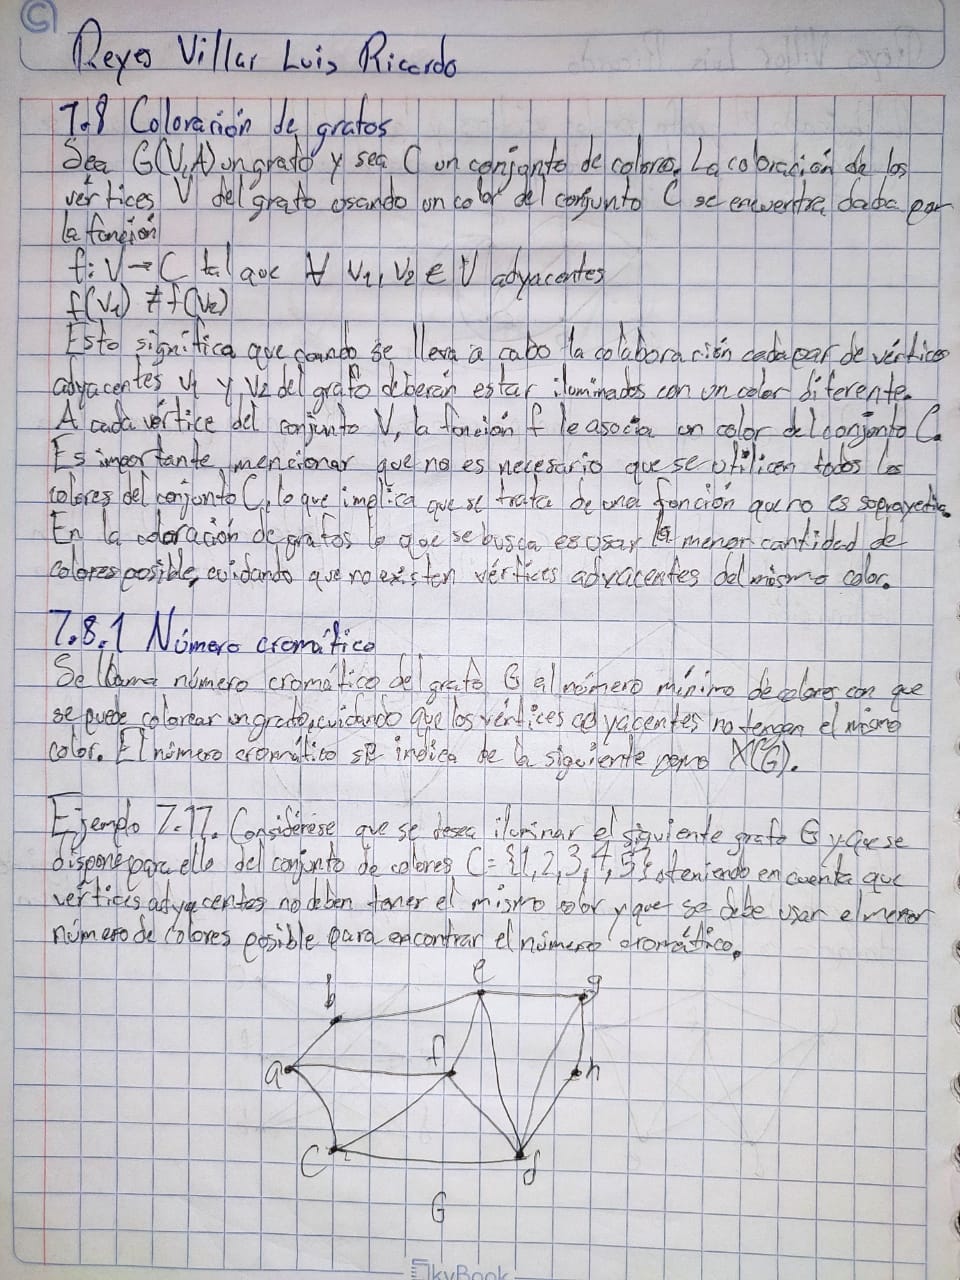 Reyes Villar Luis Ricardo
7.8 Coloración de grafos
Sea G(V,A) un grafo y sea C un conjunto de colores. La coloración de los
vértices V del grafo usando un color del conjunto C se encuentra dada por
la función
f: V → C tal que ∀ v1, v2 ∈ V adyacentes
f(v1) ≠ f(v2)
Esto significa que cuando se lleva a cabo la colaboración cada par de vértices
adyacentes v1 y v2 del grafo deberán estar iluminados con un color diferente.
A cada vértice del conjunto V, la función f le asocia un color del conjunto C.
Es importante mencionar que no es necesario que se utilicen todos los
colores del conjunto C, lo que implica que se trata de una función que no es soprayectiva.
En la coloración de grafos lo que se busca es usar la menor cantidad de
colores posible, cuidando que no existen vértices adyacentes del mismo color.
7.8.1 Número cromático
Se llama número cromático del grafo G al número mínimo de colores con que
se puede colorear un grafo, cuidando que los vértices adyacentes no tengan el mismo
color. El número cromático se indica de la siguiente X(G).
Ejemplo 7.17. Considérese que se desea iluminar el siguiente grafo G y que se
dispone para ello del conjunto de colores C = {1, 2, 3, 4, 5}, teniendo en cuenta que
vértices adyacentes no deben tener el mismo color y que se debe usar el menor
número de colores posible para encontrar el número cromático.
e
g
b
f
h
a
c
d
G
SkyBook